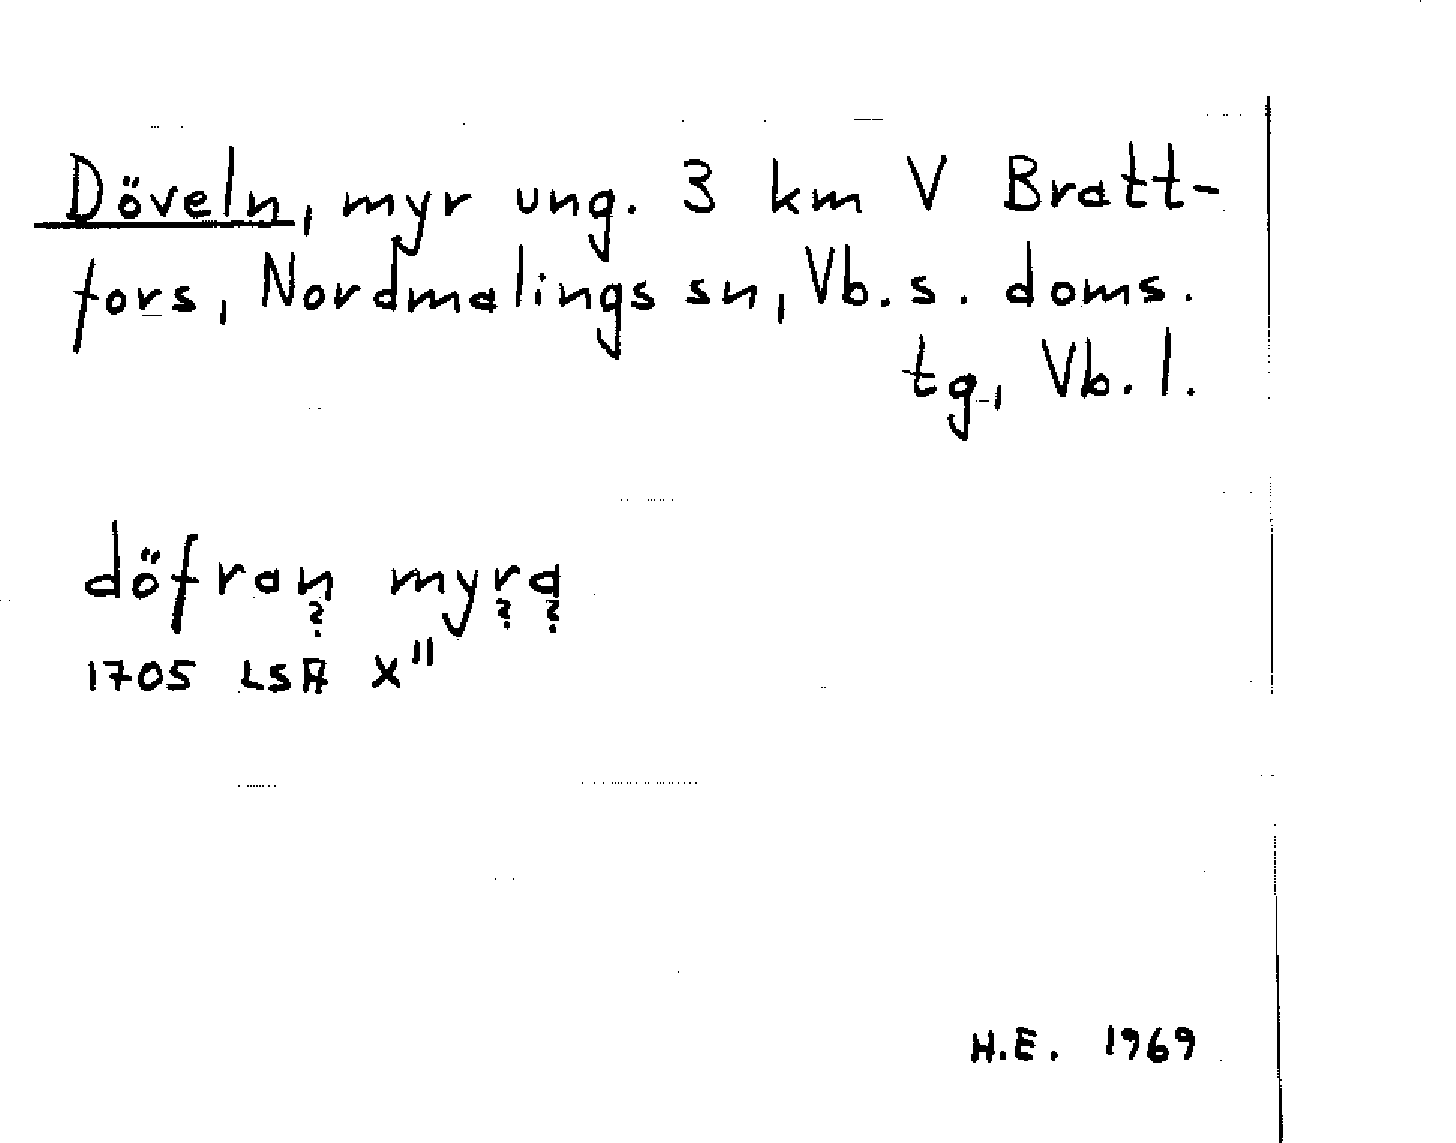 Döveln, myr ung. 3 km V Bratt-
fors, Nordmalings sn, Vb. s. doms.
tg, Vb. l.
döfran myra
? ? ?
1705 LSA X"
H.E. 1969